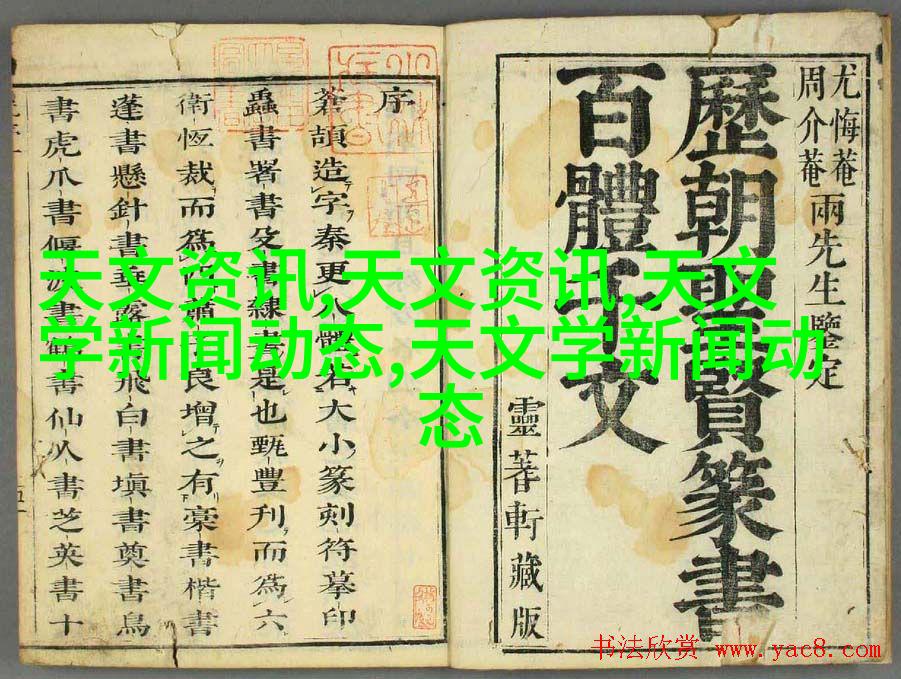 尤悔菴
周介菴
兩先生鑒定
歷朝聖賢篆書
百體千文
靈蓍軒藏版
序
蒼頡造字秦更八體名大小篆刻符摹印
蟲書署書殳書隸書是也甄豊刋而為六
衛恆裁而為四
良增之有藁書楷書
蓬書懸針書垂露書飛白書塡書奠書鳥
書虎爪書偃波書鶴書仙人書芝英書十
天文资讯,天文资讯,天文
学新闻动态,天文学新闻动
态
书法欣赏 www.yac8.com